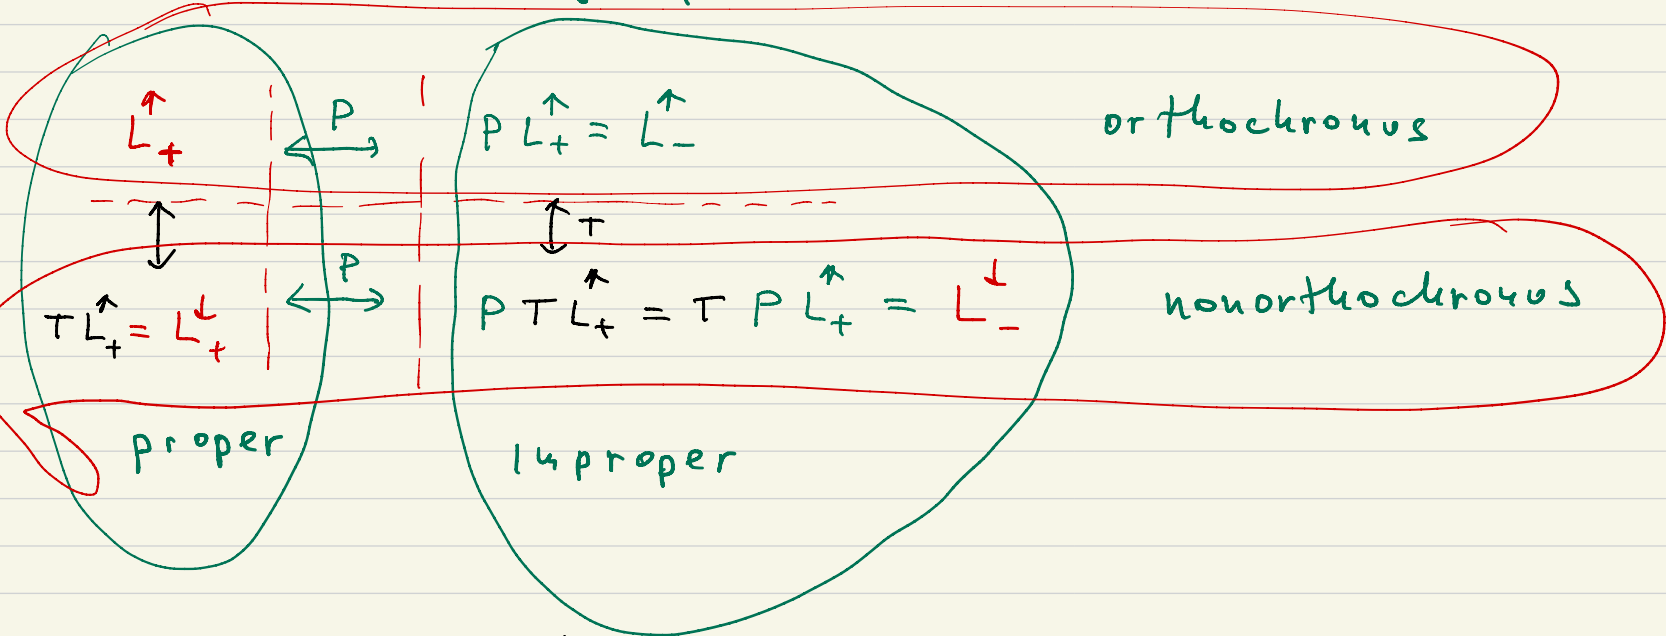 L₊↑ P P L₊↑ = L₋↑ orthochronus
T
P
T L₊↑ = L₊↓ P T L₊↑ = T P L₊↑ = L₋↓ nonorthochronus
proper Improper